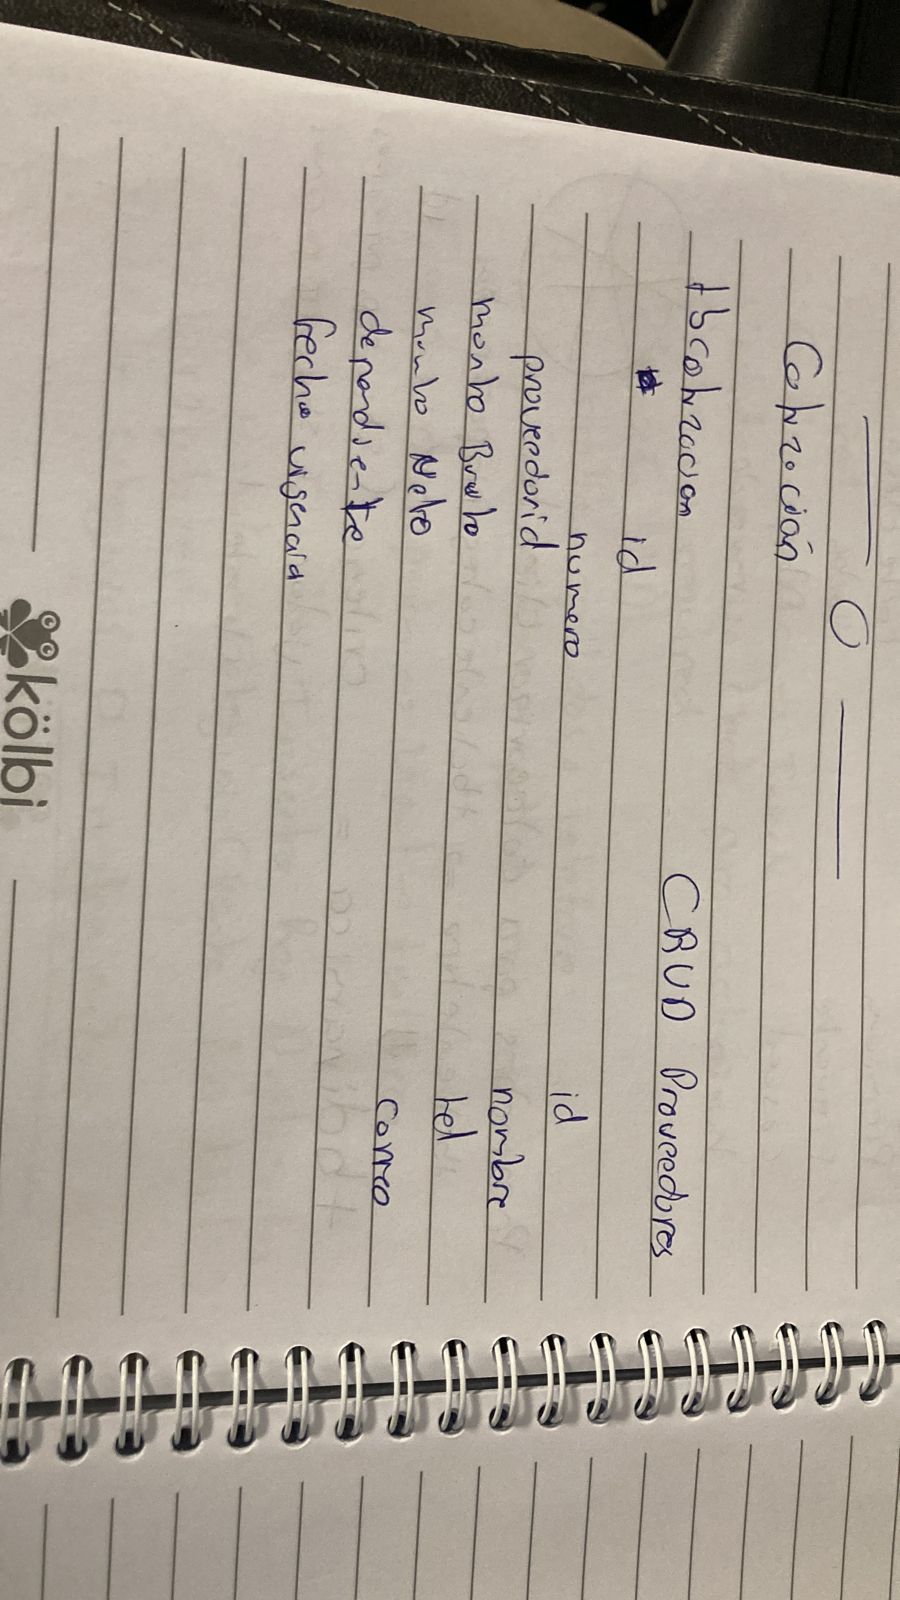 Cotización
tbcotizacion
id
numero
proveedorid
monto Bruto
monto Neto
dependiente
fecha vigencia
CRUD Proveedores
id
nombre
tel
correo
kölbi